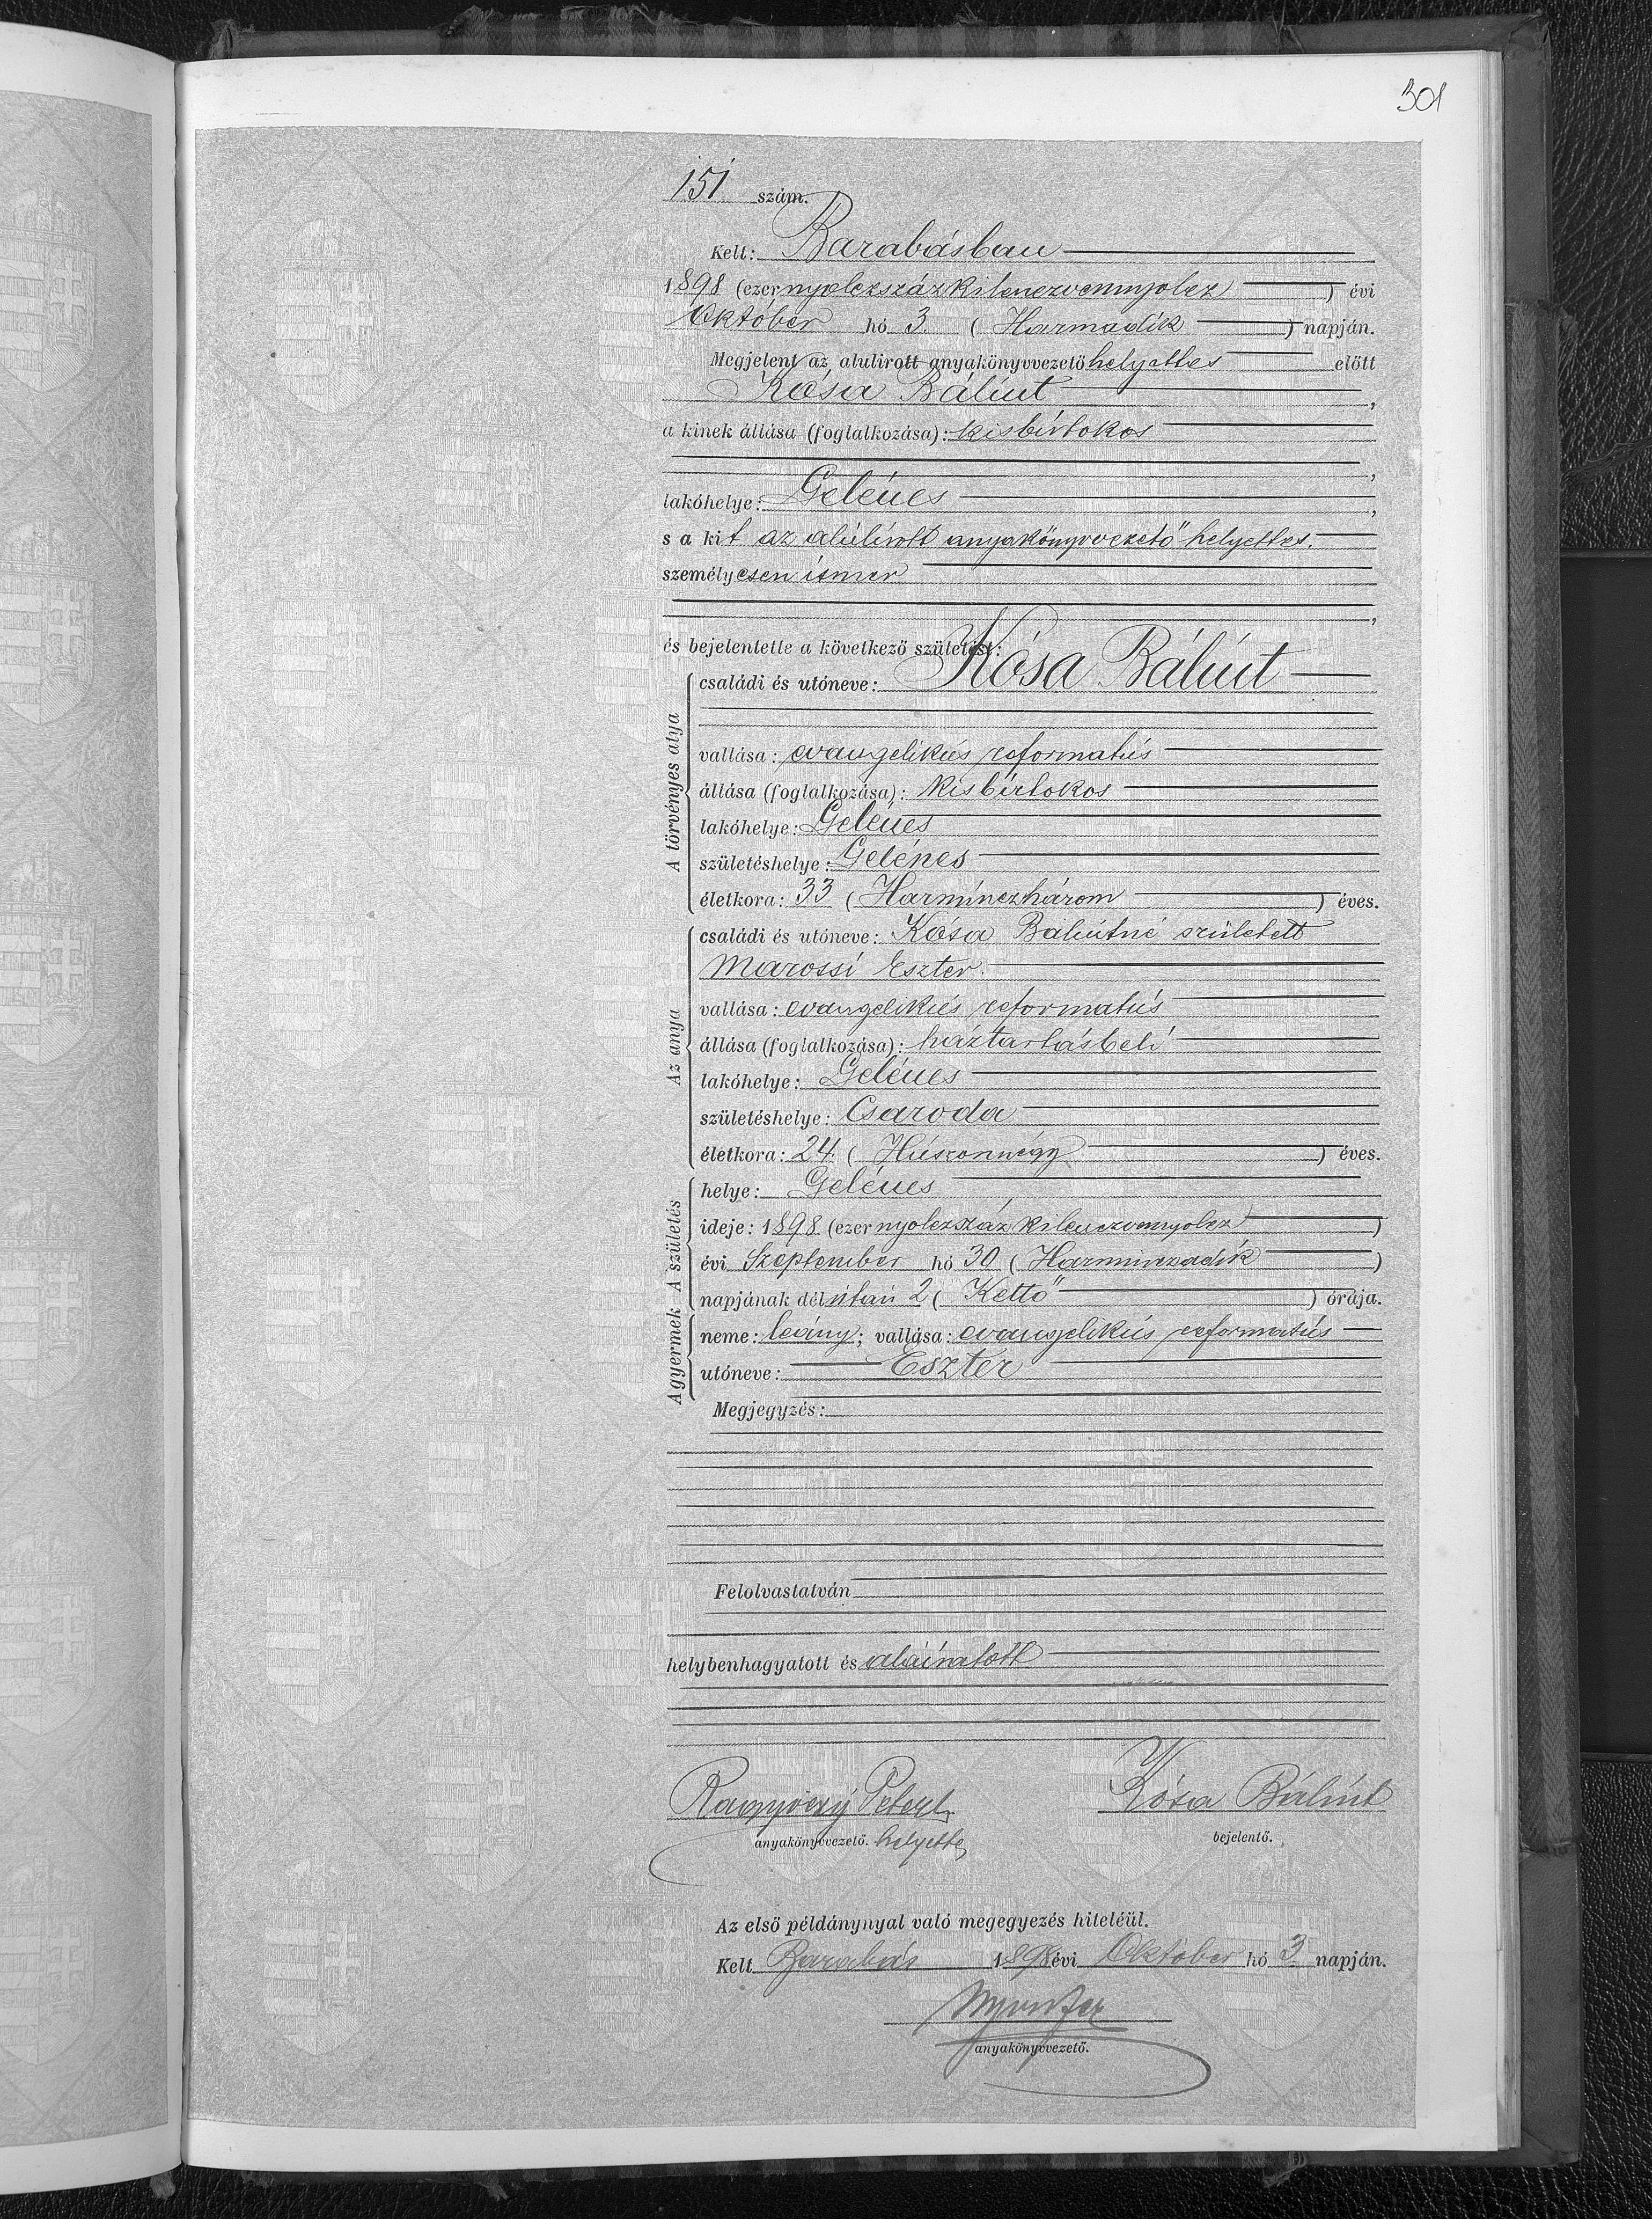 301
151 szám.
Kelt: Barabásban
1898 (ezernyolczszázkilenczvennyolcz) évi
Október hó 3. (Harmadik) napján.
Megjelent az alulirott anyakönyvvezető helyettes előtt
Kósa Bálint,
a kinek állása (foglalkozása): kisbirtokos
,
lakóhelye: Gelénes,
s a kit az alúlirott anyakönyvvezető helyettes.
személyesen ismer
,
és bejelentette a következő születést:
A törvényes atya
családi és utóneve: Kósa Bálint
vallása: evangelikús reformatús
állása (foglalkozása): kisbirtokos
lakóhelye: Gelénes
születéshelye: Gelénes
életkora: 33 (Harminczhárom) éves.
Az anya
családi és utóneve: Kósa Bálintné született
Marossi Eszter.
vallása: evangelikús reformatús
állása (foglalkozása): háztartásbeli
lakóhelye: Gelénes
születéshelye: Csaroda
életkora: 24. (Húszonnégy) éves.
A születés
helye: Gelénes
ideje: 1898 (ezernyolczszázkilenczvennyolcz)
évi Szeptember hó 30 (Harminczadik)
napjának délután 2 (Kettő) órája.
A gyermek
neme: leány; vallása: evangelikús reformatús
utóneve: Eszter
Megjegyzés:
Felolvastatván
helybenhagyatott és aláiratott
Kósa Bálint
anyakönyvvezető. helyettes
bejelentő.
Az első példánynyal való megegyezés hiteléül.
Kelt Barabás 1898 évi Október hó 3 napján.
anyakönyvvezető.